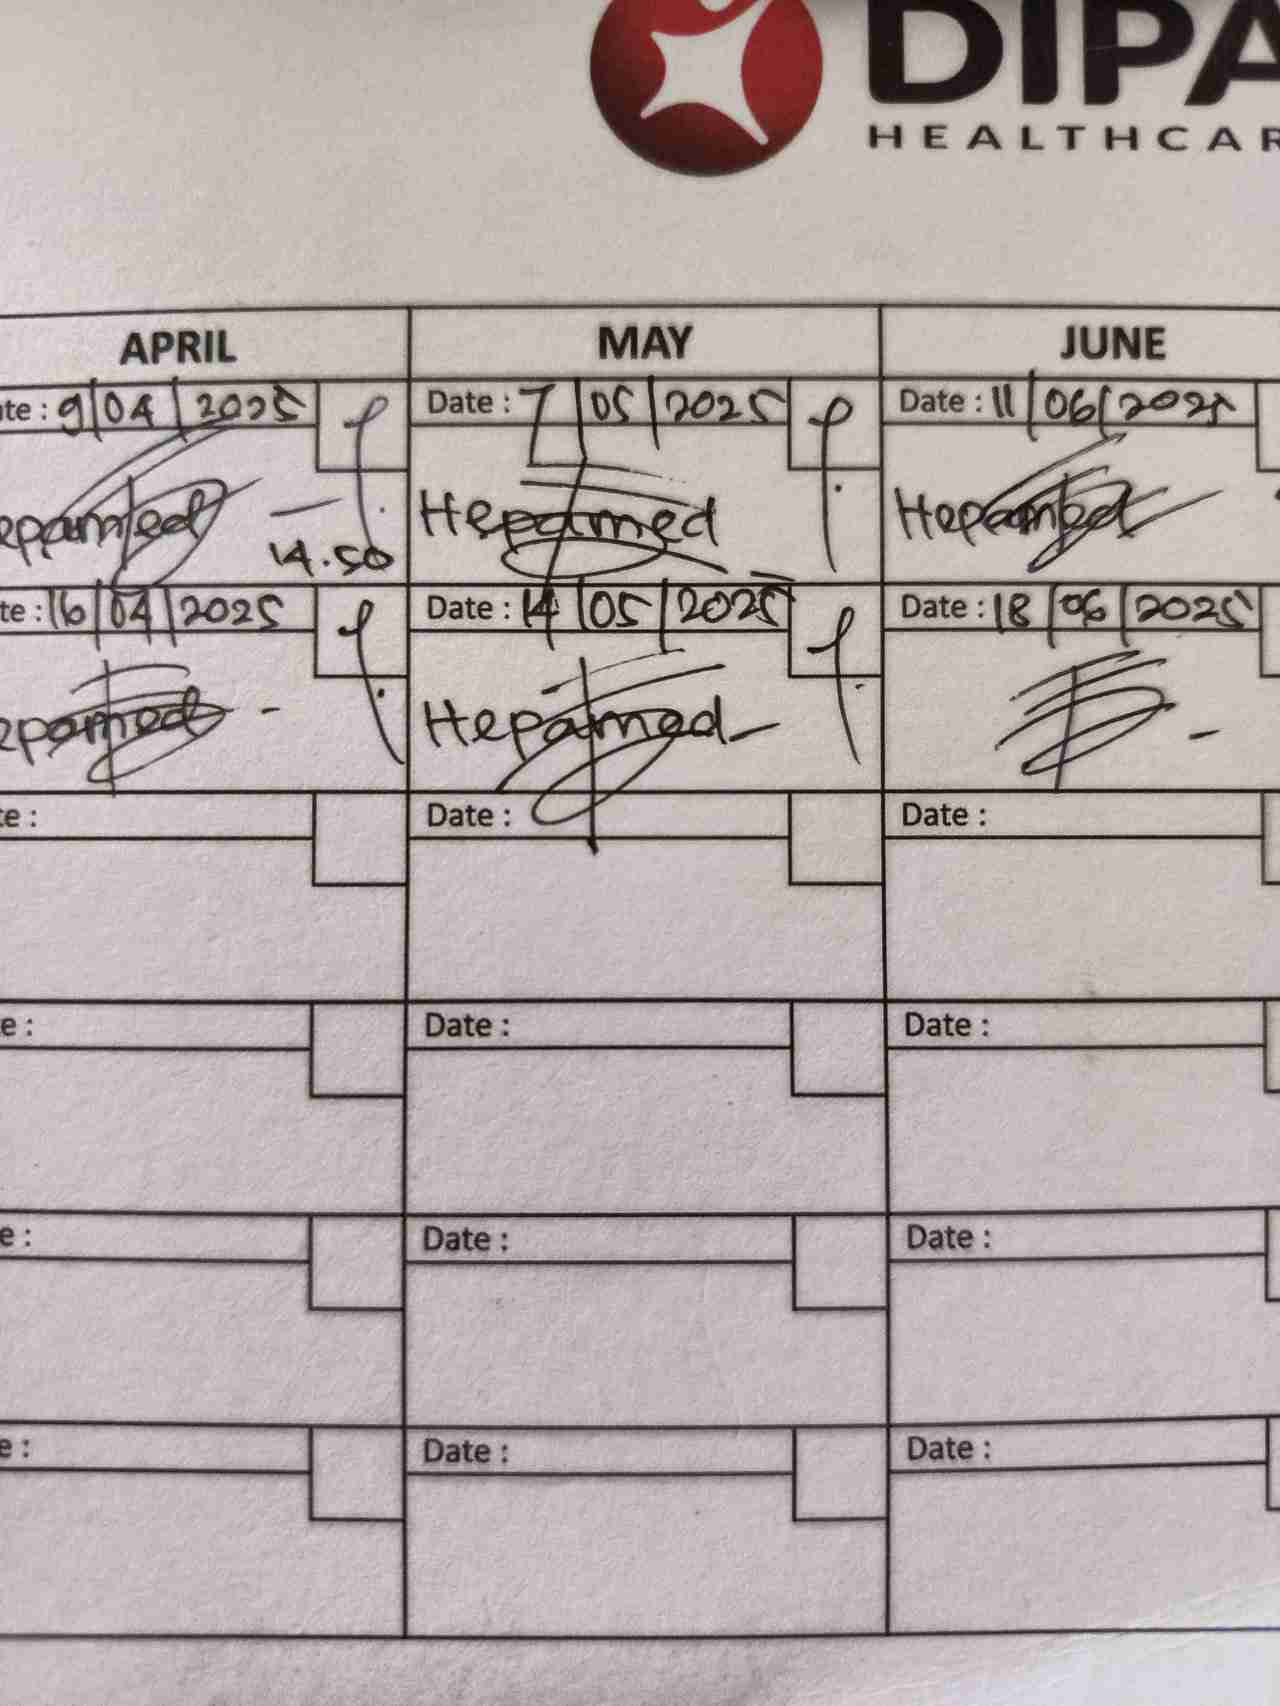 DIPA
HEALTHCAR
APRIL MAY JUNE
te : 9/04/2025 Date : 7/05/2025 Date : 11/06/2025
epamed - Hepamed Hepamed
14.50
te : 16/04/2025 Date : 14/05/2025 Date : 18/06/2025
epamed - Hepamed - -
te : Date : Date :
e : Date : Date :
e : Date : Date :
e : Date : Date :